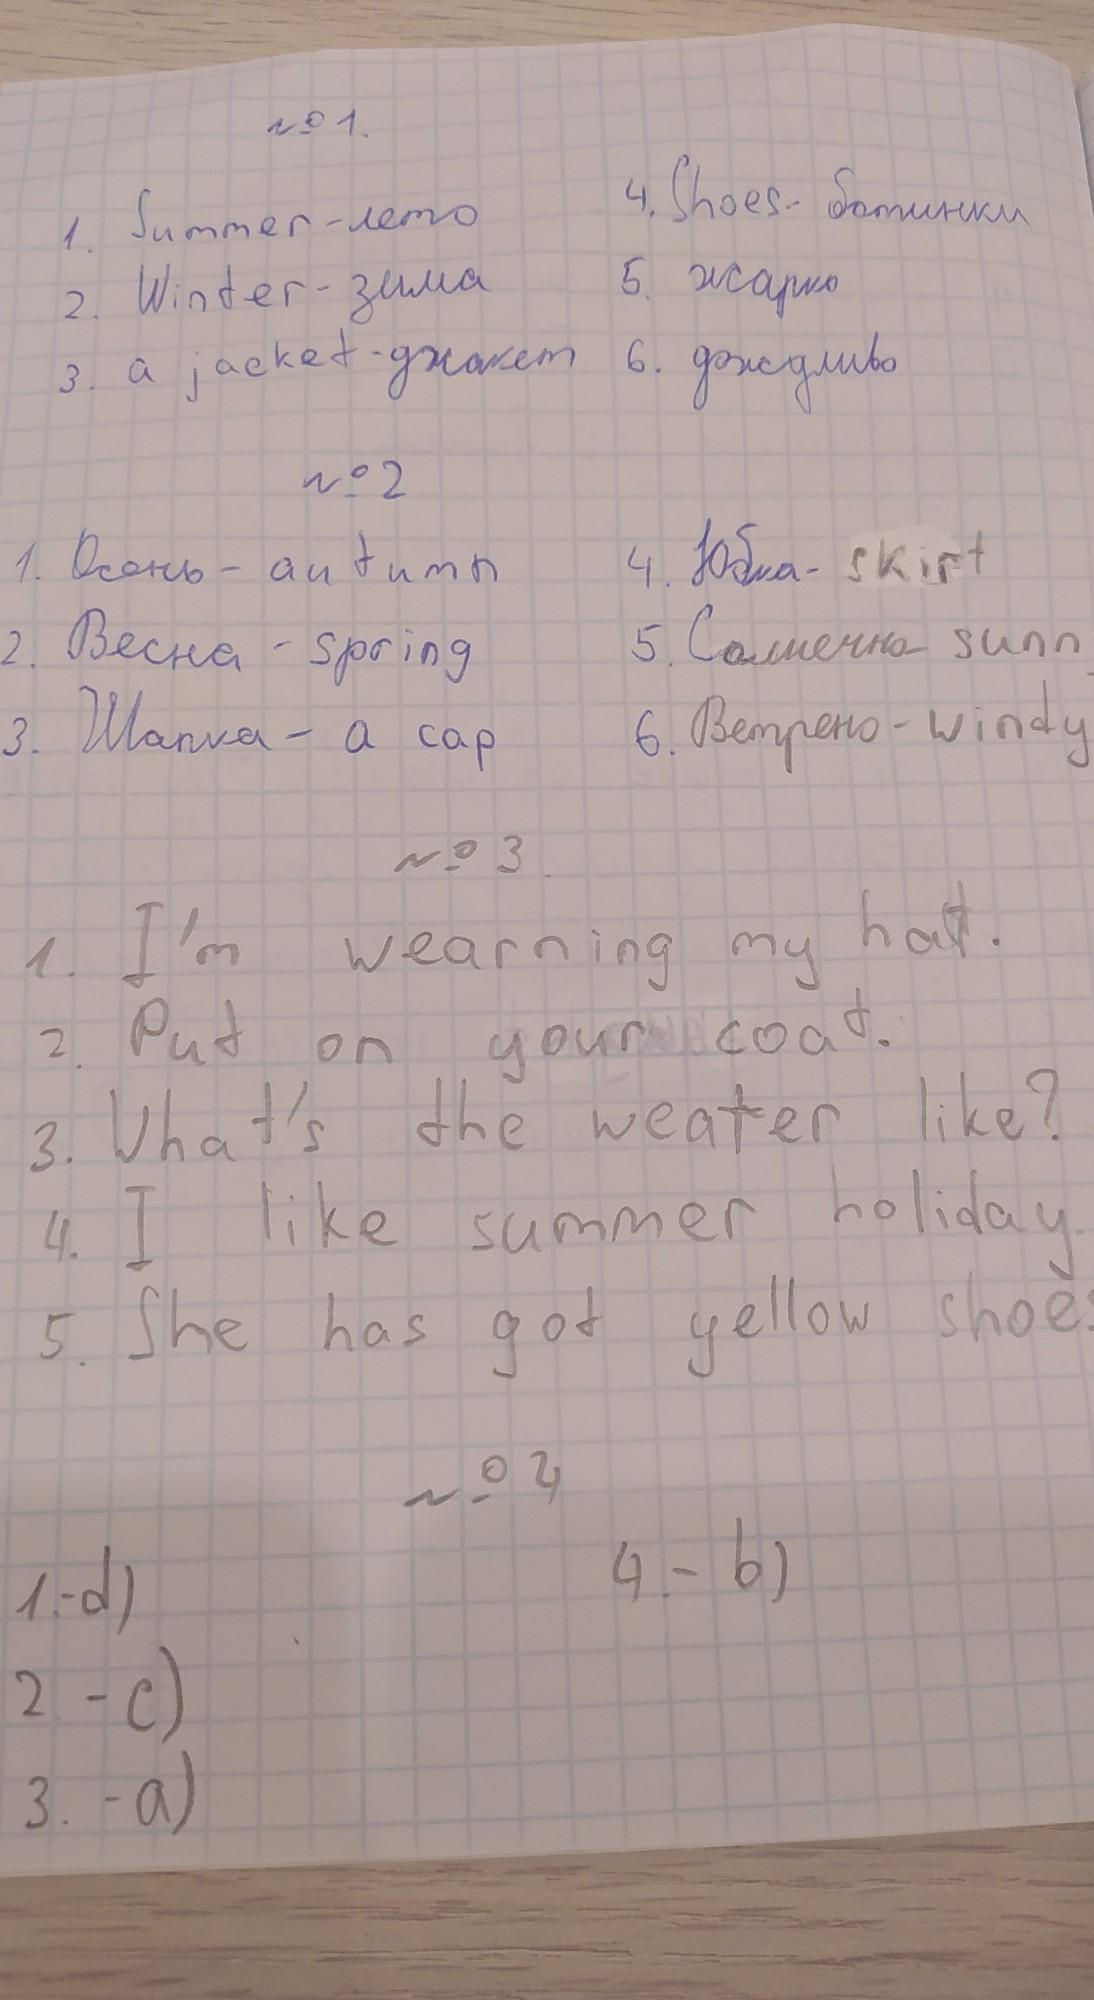 №1.
1. Summer-лето
2. Winter-зима
3. a jacket-джакет
4. Shoes- ботинки
5. жарко
6. дождливо
№2
1. Осень- autumn
2. Весна - spring
3. Шапка- a cap
4. Юбка- skirt
5. Солнечно- sunn
6. Ветрено-windy
№3.
1. I'm wearning my hat.
2. Put on your coat.
3. What's the weater like?
4. I like summer holiday.
5. She has got yellow shoes
№4
1.-d)
2 -c)
3. -a)
4.- b)